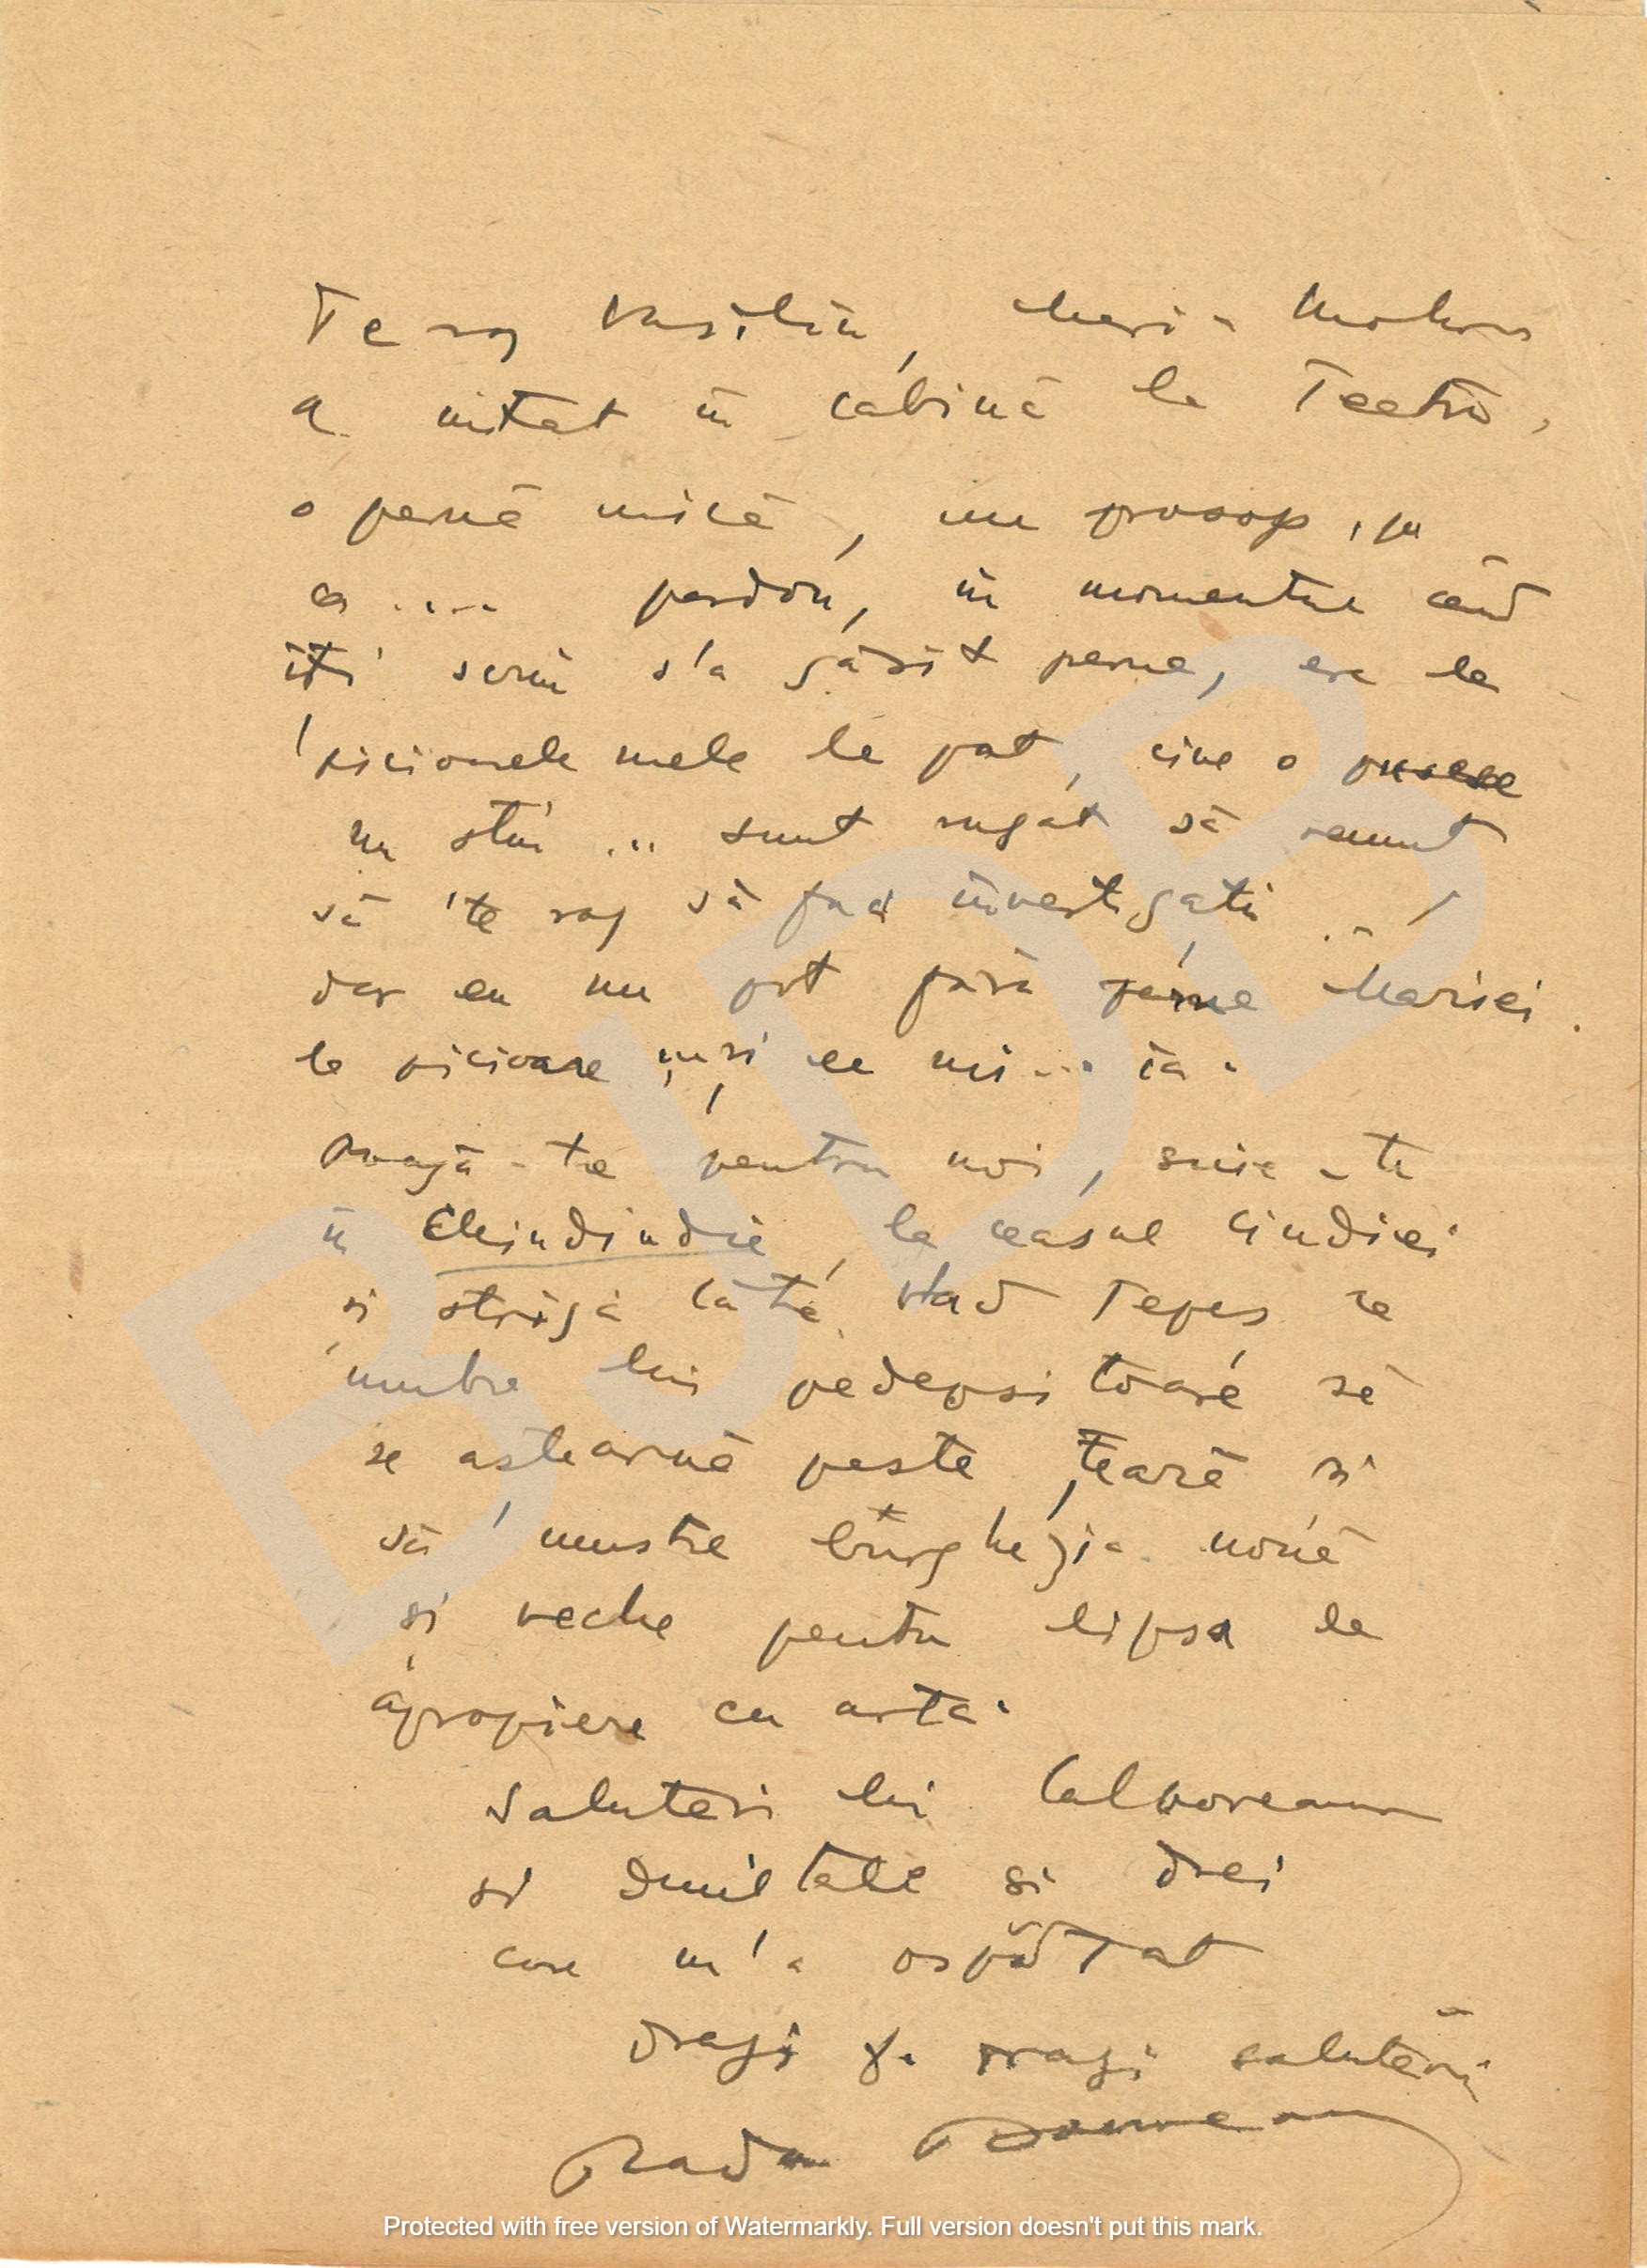 Te rog Vasiliu, Maria Mohor
a uitat în cabină la Teatru,
o pernă mică, un prosop, pu
ea .... pardon, în momentul când
îți scriu s'a găsit perna, era la
picioarele mele la pat, cine o pusese
nu știu ... sunt rugat să renunț
să te rog să faci investigații ...
dar eu nu pot fără perna Mariei
la picioare ... și ce mi ... ia.
Roagă-te pentru noi, suie-te
în Chindindie, la ceasul Cindiei
și strigă către Vlad Țepeș ca
umbra lui pedepsitoare să
se aștearnă peste țeară și
să mustre burghezia nouă
și veche pentru lipsa de
apropiere cu arta.
Salutări lui Calboreanu
și dmitale și drei
care m'a ospătat
dragi și dragi salutări
Radu
Protected with free version of Watermarkly. Full version doesn't put this mark.
BJDB